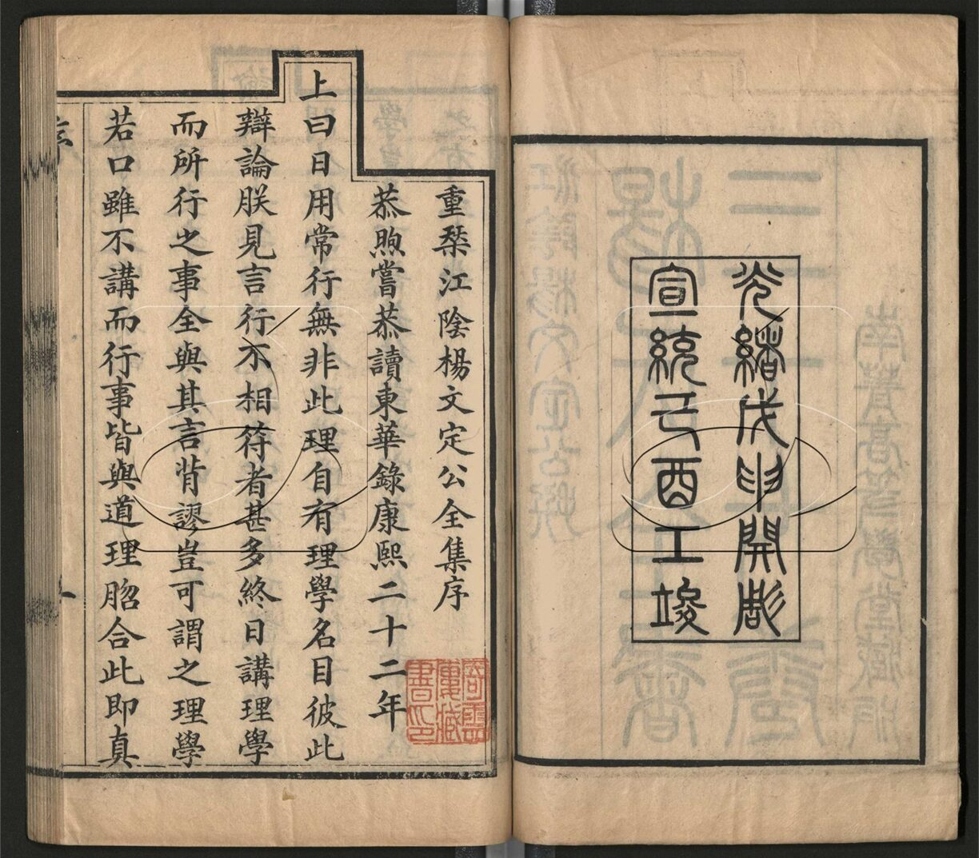 光緒戊申開彫
宣統己酉工竣
重槧江陰楊文定公全集序
恭煦嘗恭讀東華錄康熙二十二年
上曰日用常行無非此理自有理學名目彼此
辯論朕見言行不相符者甚多終日講理學
而所行之事全與其言背謬豈可謂之理學
若口雖不講而行事皆與道理脗合此即真